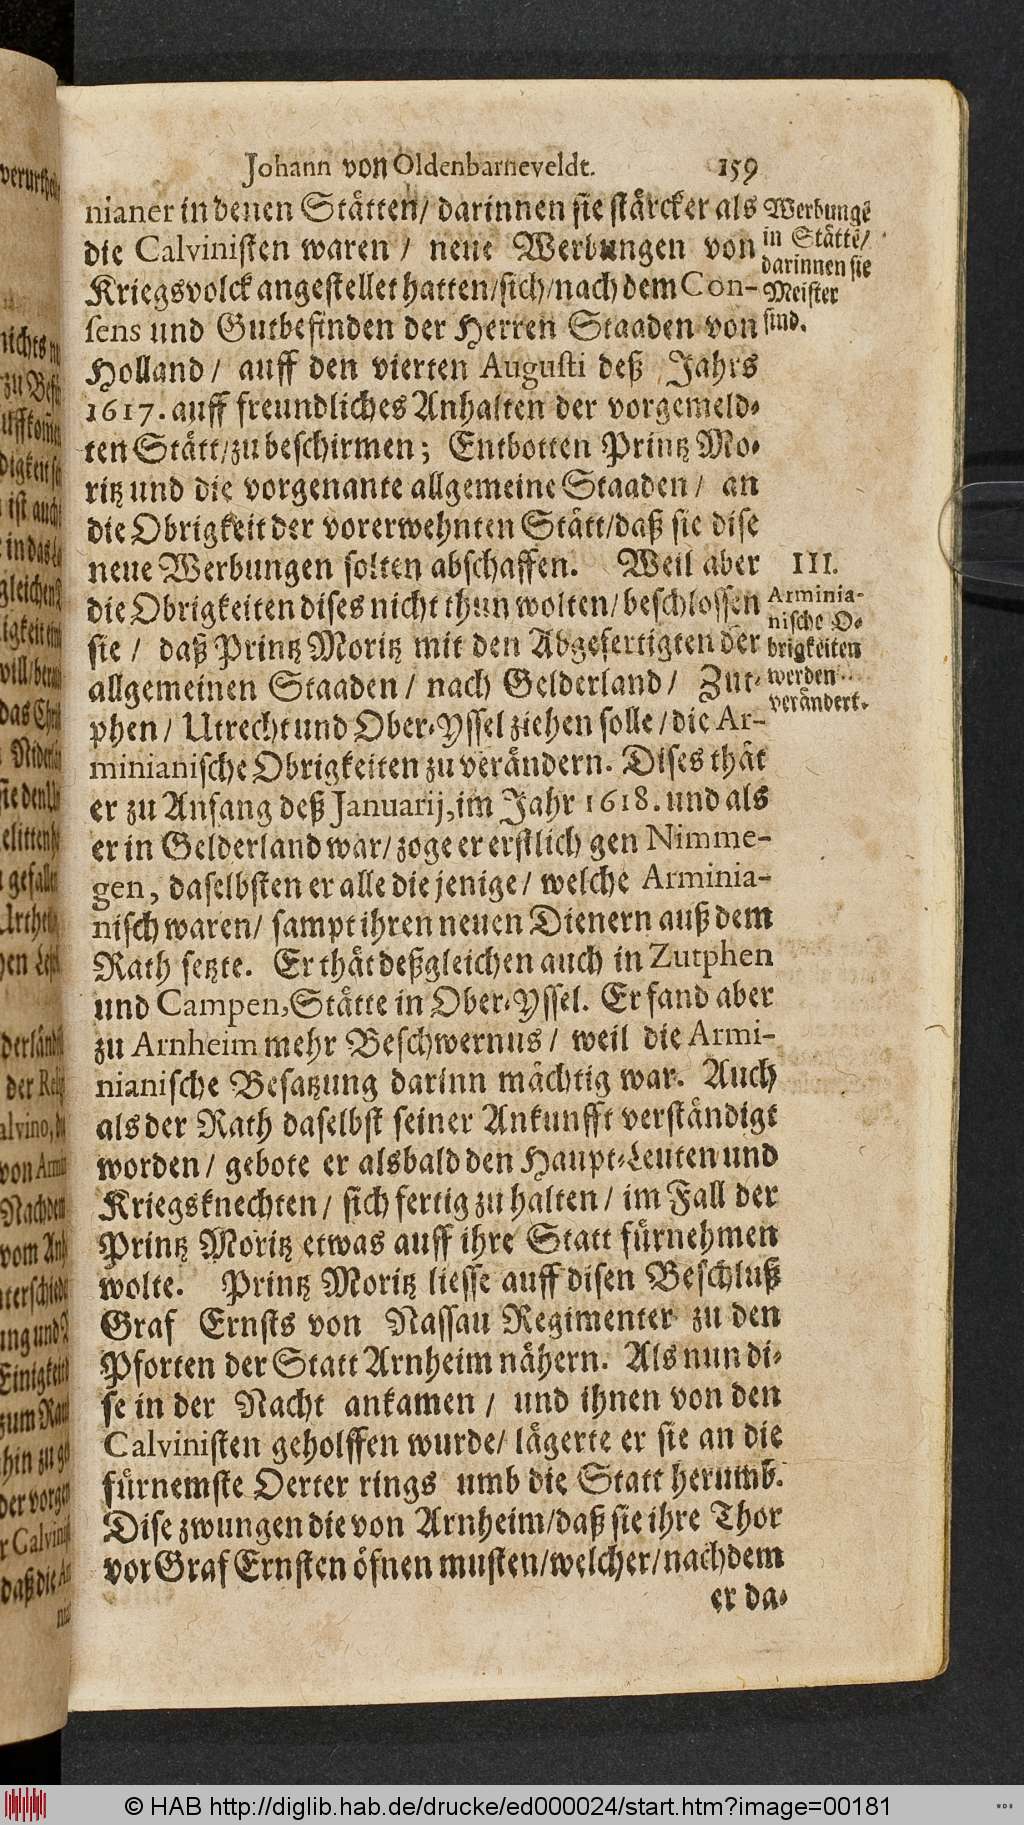 Johann von Oldenbarneveldt. 159
nianer in denen Stätten/ darinnen sie stärcker als
die Calvinisten waren / neue Werbungen von
Kriegsvolck angestellet hatten/sich/nach dem Con-
sens und Gutbefinden der Herren Staaden von
Holland/ auff den vierten Augusti deß Jahrs
1617. auff freundliches Anhalten der vorgemeld-
ten Stätt/zu beschirmen; Entbotten Printz Mo-
ritz und die vorgenante allgemeine Staaden/ an
die Obrigkeit der vorerwehnten Stätt/daß sie dise
neue Werbungen solten abschaffen. Weil aber
die Obrigkeiten dises nicht thun wolten/beschlossen
sie / daß Printz Moritz mit den Abgefertigten der
allgemeinen Staaden / nach Gelderland/ Zut-
phen/ Utrecht und Ober-Yssel ziehen solle/die Ar-
minianische Obrigkeiten zu verändern. Dises thät
er zu Anfang deß Januarij, im Jahr 1618. und als
er in Gelderland war/zoge er erstlich gen Nimme-
gen, daselbsten er alle die jenige/ welche Arminia-
nisch waren/ sampt ihren neuen Dienern auß dem
Rath setzte. Er thät deßgleichen auch in Zutphen
und Campen, Stätte in Ober-Yssel. Er fand aber
zu Arnheim mehr Beschwernus/ weil die Armi-
nianische Besatzung darinn mächtig war. Auch
als der Rath daselbst seiner Ankunfft verständigt
worden/ gebote er alsbald den Haupt-Leuten und
Kriegsknechten/ sich fertig zu halten/ im Fall der
Printz Moritz etwas auff ihre Statt fürnehmen
wolte. Printz Moritz liesse auff disen Beschluß
Graf Ernsts von Nassau Regimenter zu den
Pforten der Statt Arnheim nähern. Als nun di-
se in der Nacht ankamen / und ihnen von den
Calvinisten geholffen wurde/ lägerte er sie an die
fürnemste Oerter rings umb die Statt herumb.
Dise zwungen die von Arnheim/daß sie ihre Thor
vor Graf Ernsten öfnen musten/welcher/nachdem
er da-
Werbungē
in Stättē/
darinnen sie
Meister
sind.
III.
Arminia-
nische O-
brigkeiten
werden
verändert.
© HAB http://diglib.hab.de/drucke/ed000024/start.htm?image=00181